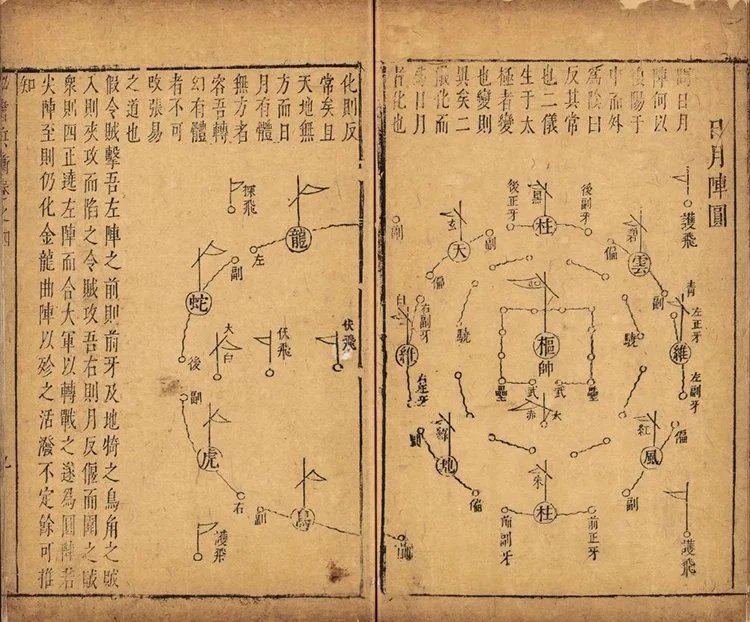 日月陣圓
日月
陣何以
陽于
中而外
爲陰曰
反其常
也二儀
生于太
極者變
也變則
異矣二
儀化而
爲日月
者化也
護飛
後副牙
後正牙
黑
柱
碧
雲
偏
副
玄
天
副
偏
副
青
左正牙
維
左副牙
白
右副牙
維
右正牙
驍
驍
樞
帥
壘
武
武
壘
赤
太
綠
地
偏
紅
風
偏
副
朱
柱
前副牙
前正牙
護飛
前
化則反
常矣且
天地無
方而日
月有體
無方者
容吾轉
幻有體
者不可
改張易
之道也
探飛
龍
左
副
蛇
後
太
白
伏飛
伏飛
副
虎
右
副
鳥
護飛
假令賊擊吾左陣之前則前牙及地犄之鳥角之賊
入則夾攻而陷之令賊攻吾右則月反偃而圍之賊
衆則四正遶左陣而合大軍以轉戰之遂爲圓陣若
尖陣至則仍化金龍曲陣以殄之活潑不定餘可推
知